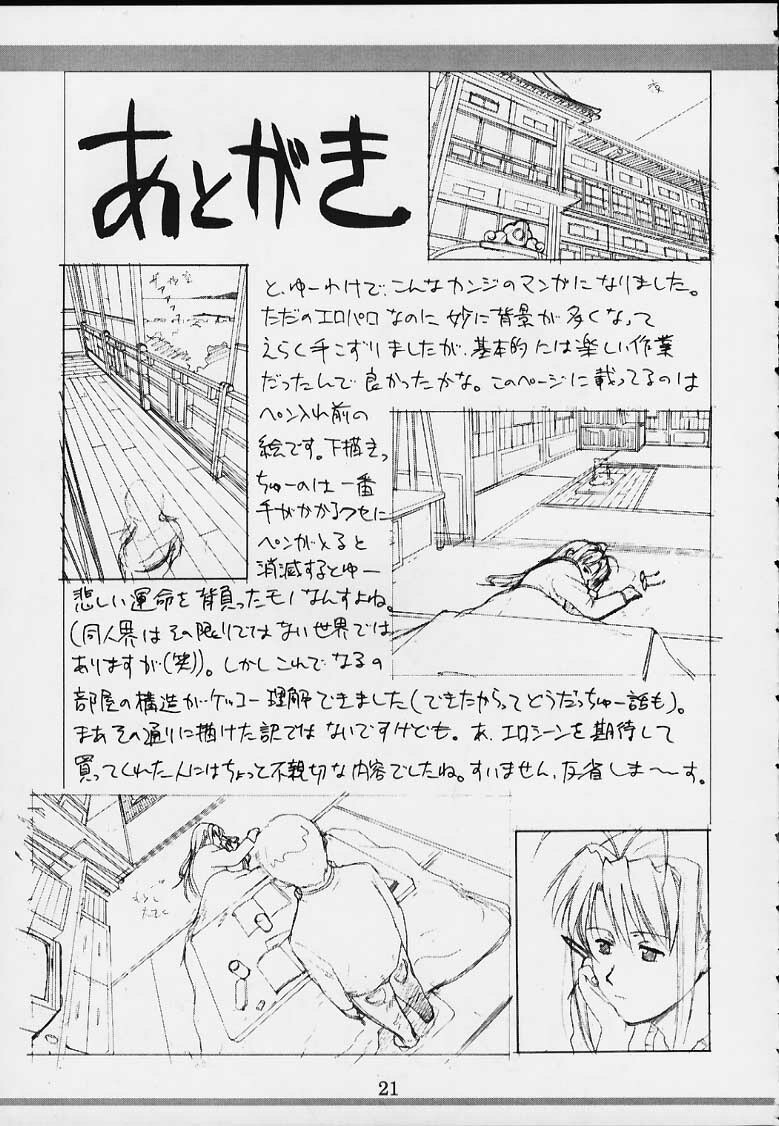 あとがき
夜
ザアアア
と、ゆーわけで、こんなカンジのマンガになりました。
ただのエロパロなのに妙に背景が多くなって
えらく手こずりましたが、基本的には楽しい作業
だったんで良かったかな。このページに載ってるのは
ペン入れ前の
絵です。下描きっ
ちゅーのは一番
手がかかるクセに
ペンが入ると
消滅するとゆー
悲しい運命を背負ったモノなんすよね。
(同人界はその限りではない世界では
ありますが(笑))。しかしこれでなるの
部屋の構造がケッコー理解できました(できたからってどうだっちゅー話も)。
まあその通りに描けた訳ではないですけども。あ、エロシーンを期待して
買ってくれた人にはちょっと不親切な内容でしたね。すいません、反省しま〜す。
21